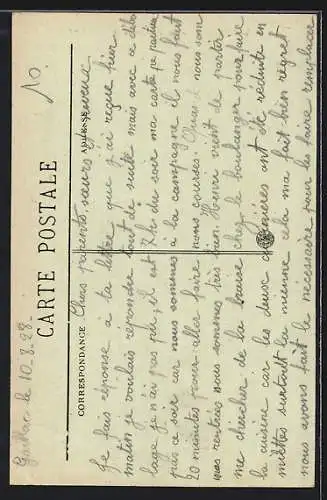 10.
10.8.28.
CARTE POSTALE
CORRESPONDANCE
ADRESSE
Chers parents, sœurs et neveux
Je fais réponse à la lettre que j'ai reçue hier
matin je voulais répondre tout de suite mais avec ce
je n'ai pas pu, il est 7h du soir ma carte ne partira
pas ce soir car nous sommes à la campagne il nous faut
20 minutes pour aller faire nos courses. Nous nous sommes
pas rentrés nous sommes très bien. vient de partir
me chercher de la braise chez le boulanger pour faire
la cuisine car les deux ont été réduite en
miettes surtout la mienne cela m'a fait bien regret
nous avons fait le nécessaire pour les faire remplacer